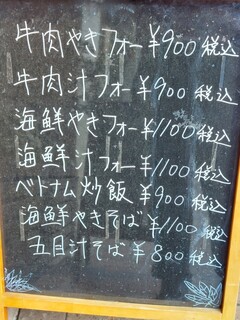 牛肉やきフォー ¥900 税込
牛肉汁フォー ¥900 税込
海鮮やきフォー ¥1100 税込
海鮮汁フォー ¥1100 税込
ベトナム炒飯 ¥900 税込
海鮮やきそば ¥1100 税込
五目汁そば ¥800 税込